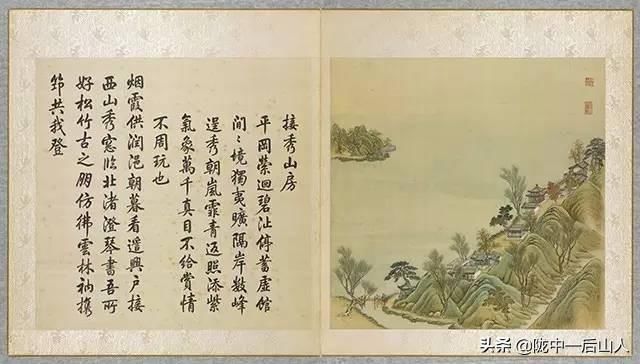 接秀山房
平岡縈迴碧沚停蓄虛館
閒〻境獨夷曠隔岸數峰
逞秀朝嵐霏青返照添紫
氣象萬千真目不給賞情
不周玩也
烟霞供潤浥朝暮看遙興戶接
西山秀窗臨北渚澄琴書吾所
好松竹古之朋仿彿雲林衲攜
筇共我登
头条 @陇中一后山人